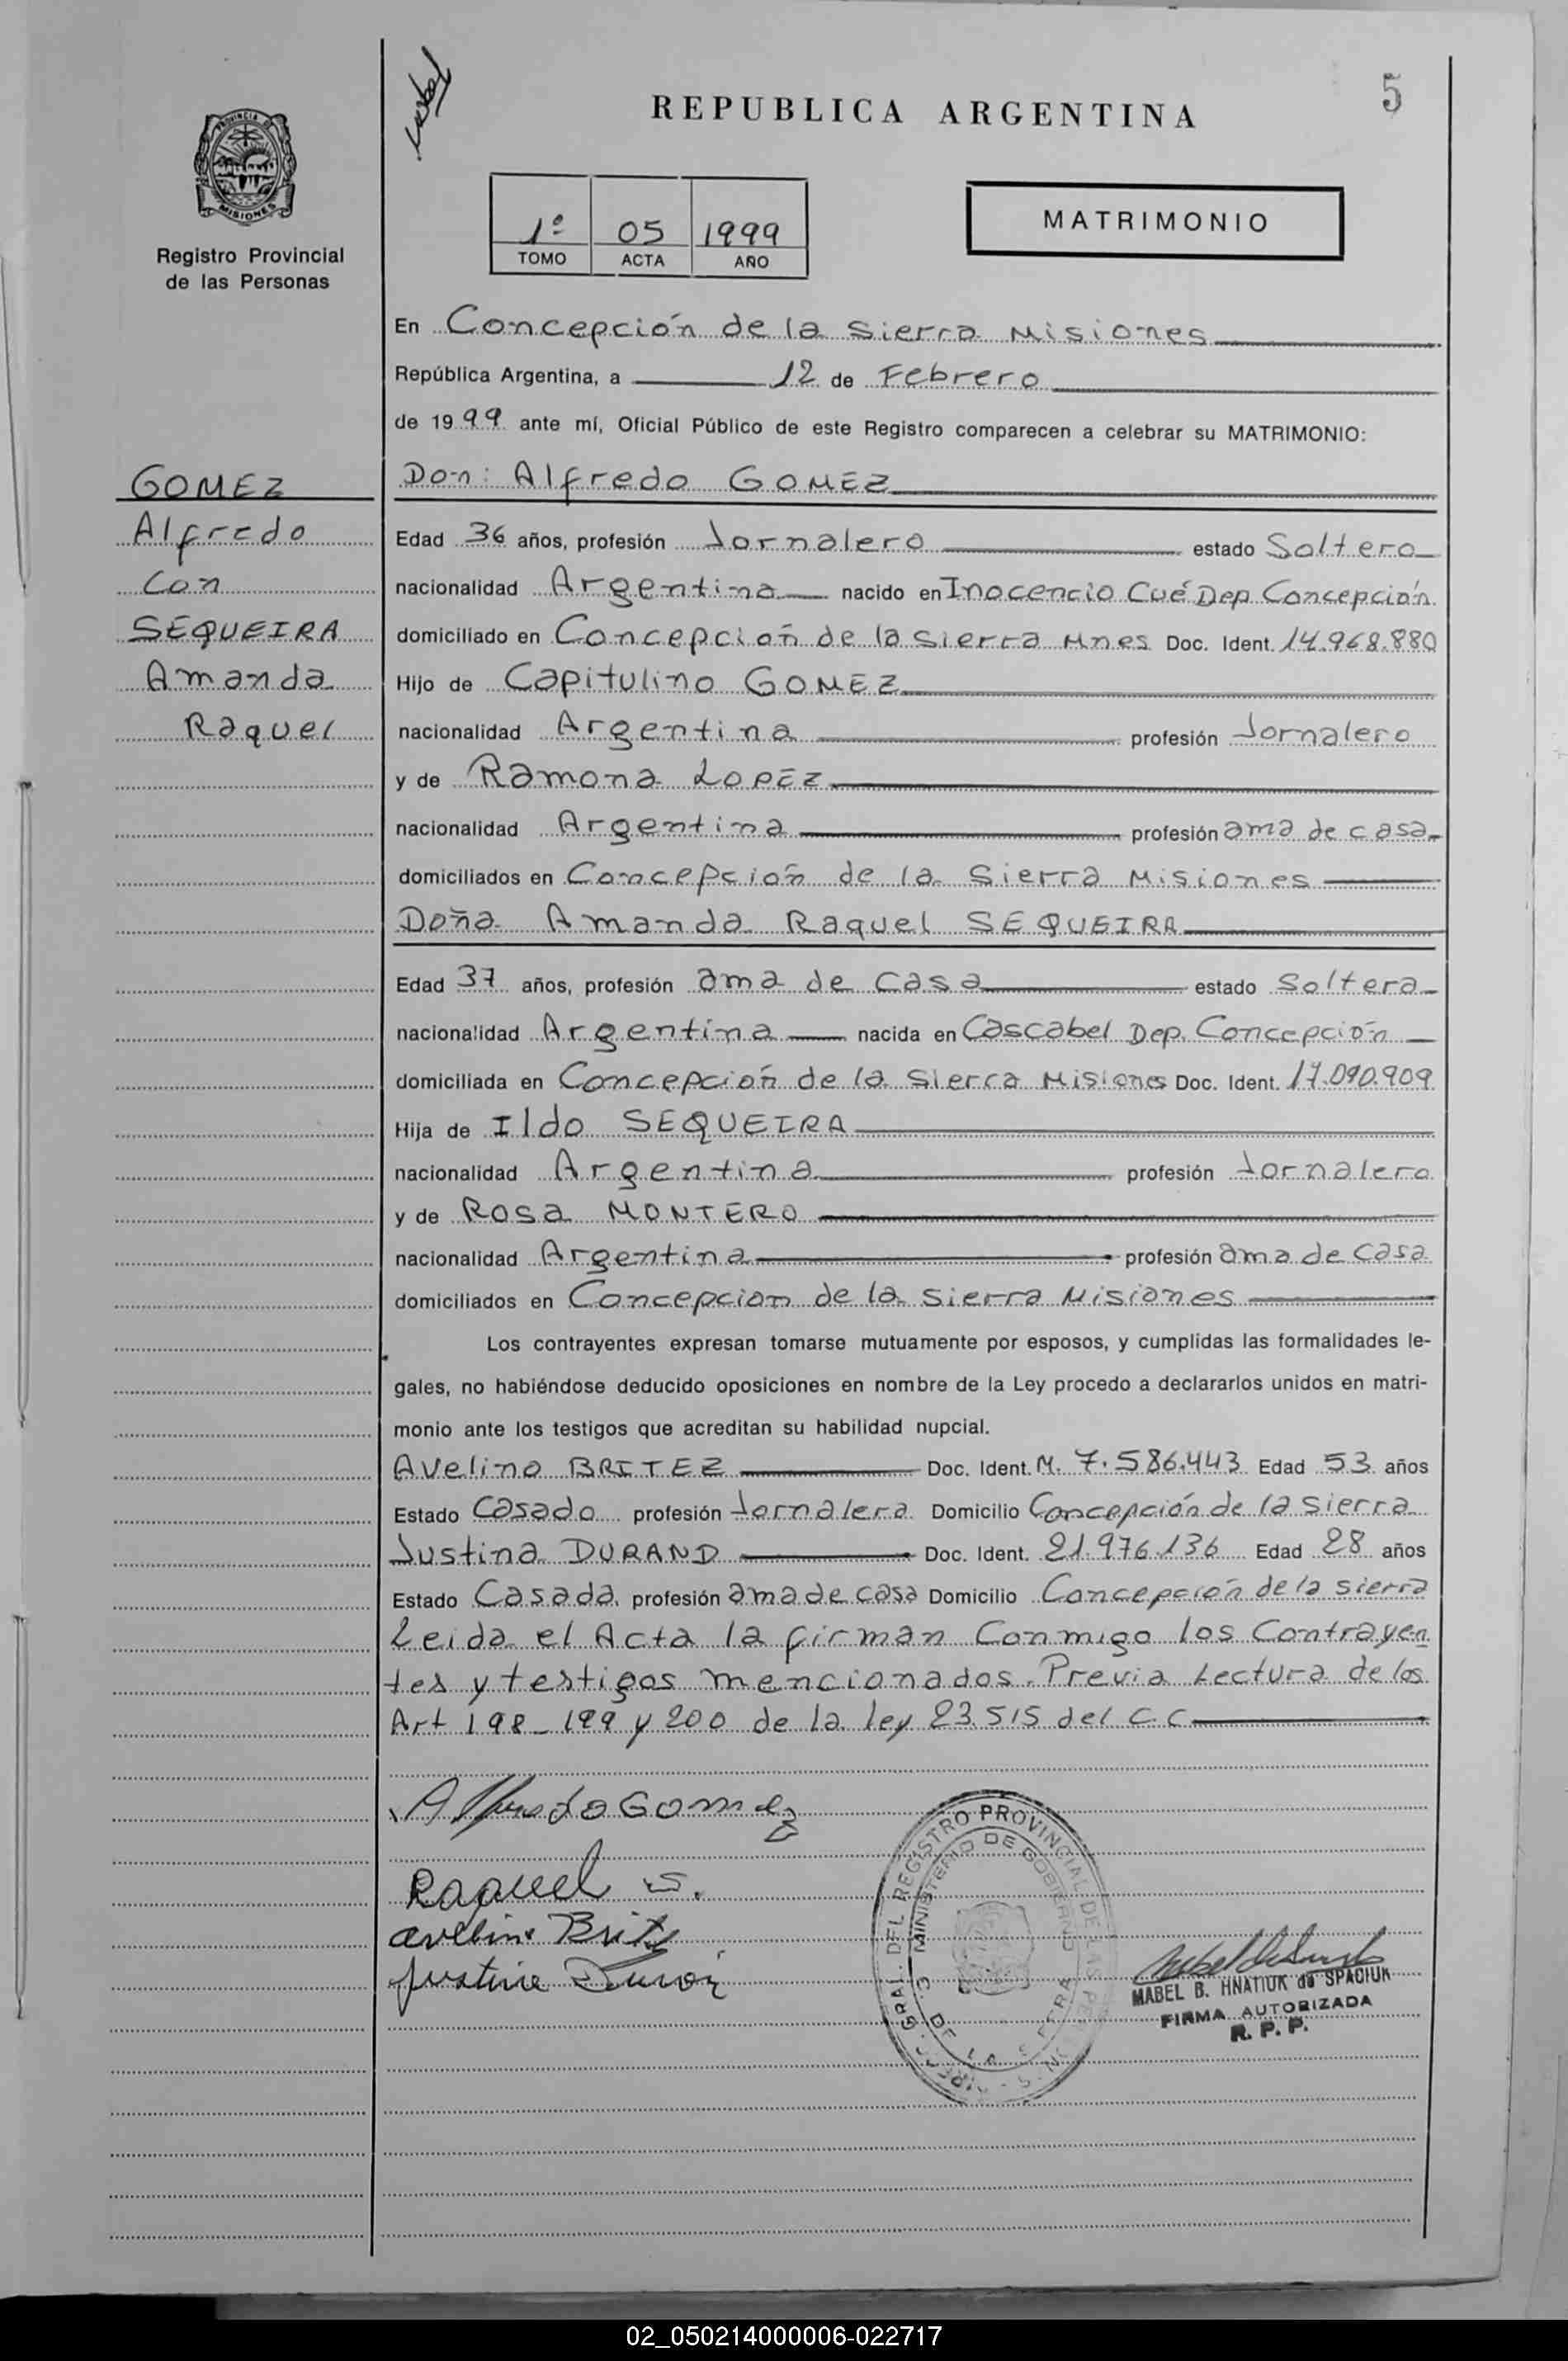 5
REPUBLICA ARGENTINA
PROVINCIA DE
MISIONES
Registro Provincial
de las Personas
1º 05 1999
TOMO ACTA AÑO
MATRIMONIO
En Concepción de la Sierra Misiones
República Argentina, a 12 de Febrero
de 1999 ante mí, Oficial Público de este Registro comparecen a celebrar su MATRIMONIO:
GOMEZ
Alfredo
Con
SEQUEIRA
Amanda
Raquel
Don: Alfredo GOMEZ
Edad 36 años, profesión Jornalero estado Soltero
nacionalidad Argentina nacido en Inocencio Cué Dep Concepción
domiciliado en Concepcioń de la Sierra Mnes Doc. Ident. 14.968.880
Hijo de Capitulino GOMEZ
nacionalidad Argentina profesión Jornalero
y de Ramona LOPEZ
nacionalidad Argentina profesión ama de casa
domiciliados en Concepcioń de la Sierra Misiones
Doña Amanda Raquel SEQUEIRA
Edad 37 años, profesión ama de casa estado Soltera
nacionalidad Argentina nacida en Cascabel Dep. Concepción
domiciliada en Concepcioń de la Sierra Misiones Doc. Ident. 17.090.909
Hija de Ildo SEQUEIRA
nacionalidad Argentina profesión Jornalero
y de Rosa MONTERO
nacionalidad Argentina profesión ama de casa
domiciliados en Concepcion de la Sierra Misiones
Los contrayentes expresan tomarse mutuamente por esposos, y cumplidas las formalidades le-
gales, no habiéndose deducido oposiciones en nombre de la Ley procedo a declararlos unidos en matri-
monio ante los testigos que acreditan su habilidad nupcial.
Avelino BRITEZ Doc. Ident. M. 7.586.443 Edad 53 años
Estado Casado profesión Jornalero Domicilio Concepción de la Sierra
Justina DURAND Doc. Ident. 21.976.136 Edad 28 años
Estado Casada profesión ama de casa Domicilio Concepción de la Sierra
Leida el Acta la firman Conmigo los Contrayen
tes y testigos mencionados. Previa Lectura de los
Art 198-199 y 200 de la ley 23.515 del C.C
Alfredo Gomez
Raquel S.
avelino Britez
Justina
GRAL. DEL REGISTRO PROVINCIAL DE LAS
MINISTERIO DE GOBIERNO
DE LA SIERRA
MABEL B. HNATIUK de SPACIUK
FIRMA AUTORIZADA
R. P. P.
02_050214000006-022717